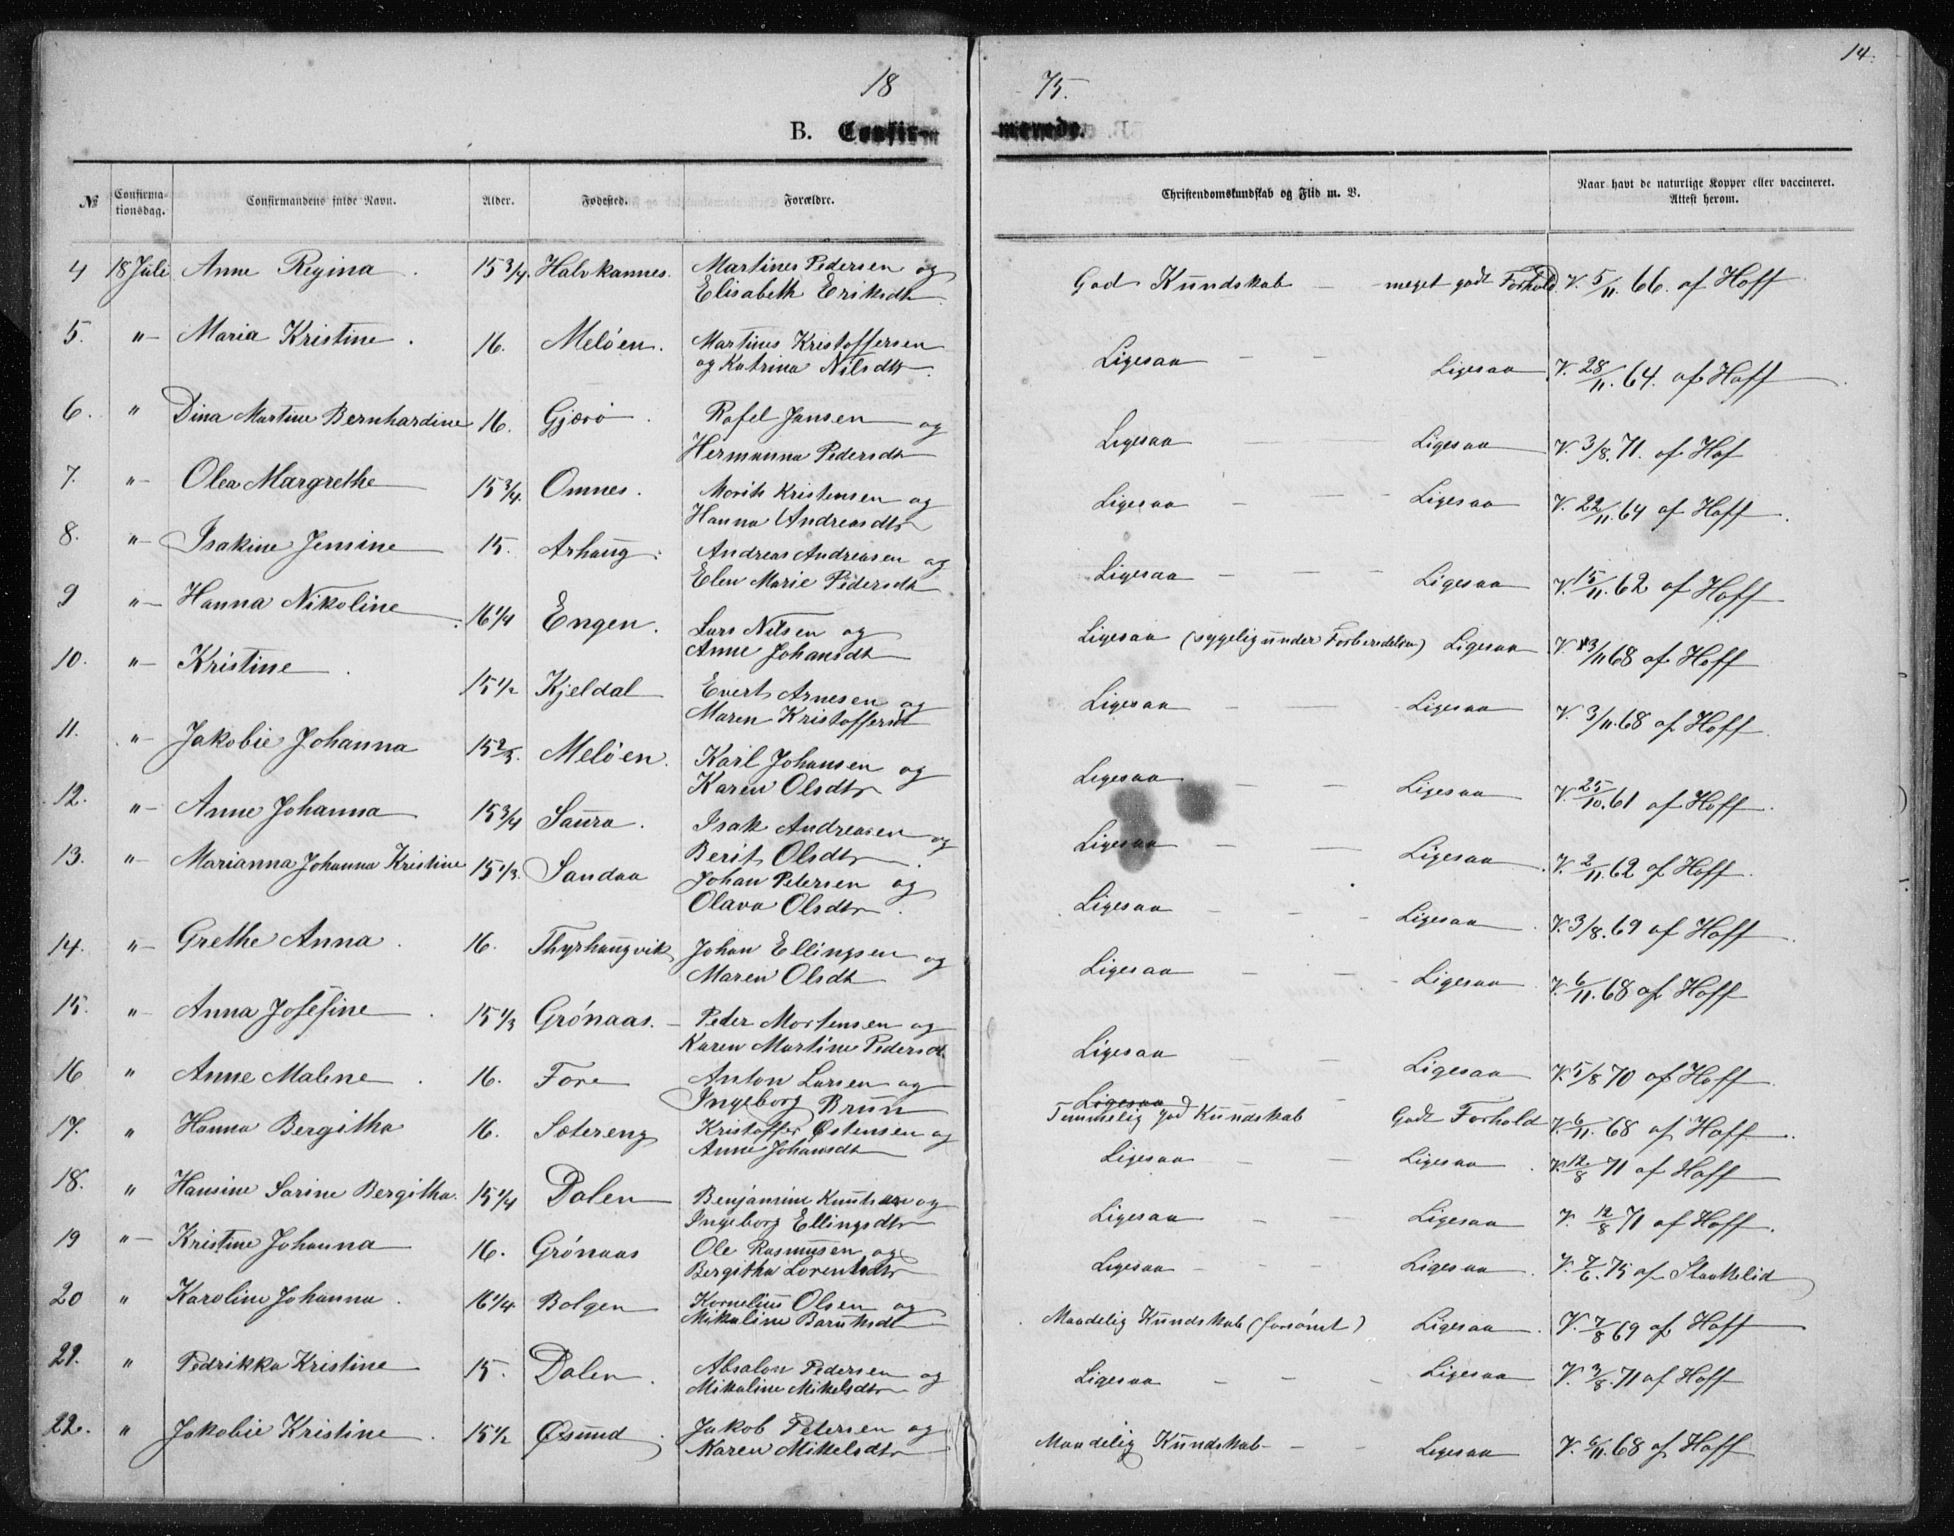 14.
18 75.
B. Confirmerede.
№ Confirmationsdag. Confirmandens fulde Navn. Alder. Fødested. Forældre. Christendomskundskab og Flid m. V. Naar havt de naturlige Kopper eller vaccineret. Attest herom.
4 18 Juli Anne Regina 15 3/4. Halvkannes. Martines Pedersen og God Kundskab — meget godt Forhold. V. 5/11. 66. af Hoff
Elisabeth Eriksdtr
5. "— Maria Kristine. 16. Melöen. Martines Kristoffersen Ligesaa — — Ligesaa V. 28/11. 64. af Hoff
og Katrina Nilsdtr.
6. " Dina Martine Bernhardine 16. Gjærö. Rafel Jansen og Ligesaa — Ligesaa V. 3/8. 71. af Hof
Hermanna Pedersdtr
7. "— Olea Margrethe 15 3/4. Omnes. Morits Kristensen og Ligesaa — — Ligesaa V. 22/11. 64 af Hoff.
Hanna Andreasdtr
8. "— Isakine Jensine 15. Arhaug. Andreas Andreasen og Ligesaa — — — Ligesaa V. 15/11. 62 af Hoff
Elen Marie Pedersdtr
9 "— Hanna Nikoline 16 1/4 Engen. Lars Nilsen og Ligesaa (sygelig under Forberedelsen) Ligesaa V. 3/11 68 af Hoff
Anne Johansdtr
10. "— Kristine. 15 1/2 Kjeldal Evert Arnesen og Ligesaa — — Ligesaa V. 3/11. 68 af Hoff
Maren Kristoffersdt
11. "— Jakobie Johanna 15 2/3. Melöen. Karl Johansen og Ligesaa — — Ligesaa V. 25/10. 61 af Hoff.
Karen Olsdtr
12. "— Anne Johanna 15 3/4 Saura. Isak Andreasen og Ligesaa — — Ligesaa V. 2/11. 62 af Hoff.
Berit Olsdtr.
13. "— Marianna Johanna Kristine 15 1/3. Sandaa Johan Petersen og Ligesaa — — Ligesaa V. 3/8. 69 af Hoff.
Olava Olsdtr.
14. "— Grethe Anna. 16. Thyrhaugvik Johan Ellingsen og Ligesaa — — Ligesaa V. 6/11. 68 af Hoff
Maren Olsdt
15. "— Anna Josefine. 15 1/3 Grönaas. Peder Mortensen og Ligesaa — — Ligesaa V. 5/8 70 af Hoff
Karen Martine Pedersdt.
16 " Anne Malene. 16. Fore Anton Larsen og Ligesaa
Ingeborg Brun Temmelig god Kundskab Godt Forhold V. 6/11. 68 af Hoff.
17. " Hanna Bergitha 16. Sætereng Kristoffer Østensen og Ligesaa — — Ligesaa. V. 12/8 71 af Hoff
Anne Johansdt
18. " Hansine Sarine Bergitha. 15 1/4 Dalen Benjamine Knutsen og Ligesaa — — Ligesaa V. 12/8 71 af Hoff.
Ingeborg Ellingsdtr
19 "— Kristine Johanna 16. Grönaas Ole Rasmusen og Ligesaa — — Ligesaa. V. 7/6. 75 af
Bergitha Lorentsdtr
20 " Karoline Johanna. 16 1/4 Bolgen Kornelius Olsen og Maadelig Kundskab (forsömt) Ligesaa. V. 7/8 69 af Hoff
Mikaline
21. " Fedrikka Kristine 15. Dalen. Absalon Pedersen og Ligesaa — — — Ligesaa V. 3/8. 71 af Hoff
Mikaline Mikelsdtr
22. " Jakobie Kristine. 15 1/2 Øsund. Jakob Petersen og Maadelig Kundskab — — Ligesaa V. 6/11. 68 af Hoff
Karen Mikelsdtr